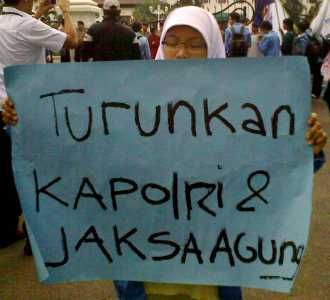 Turunkan
KAPolRi &
JAKSA AGUNG